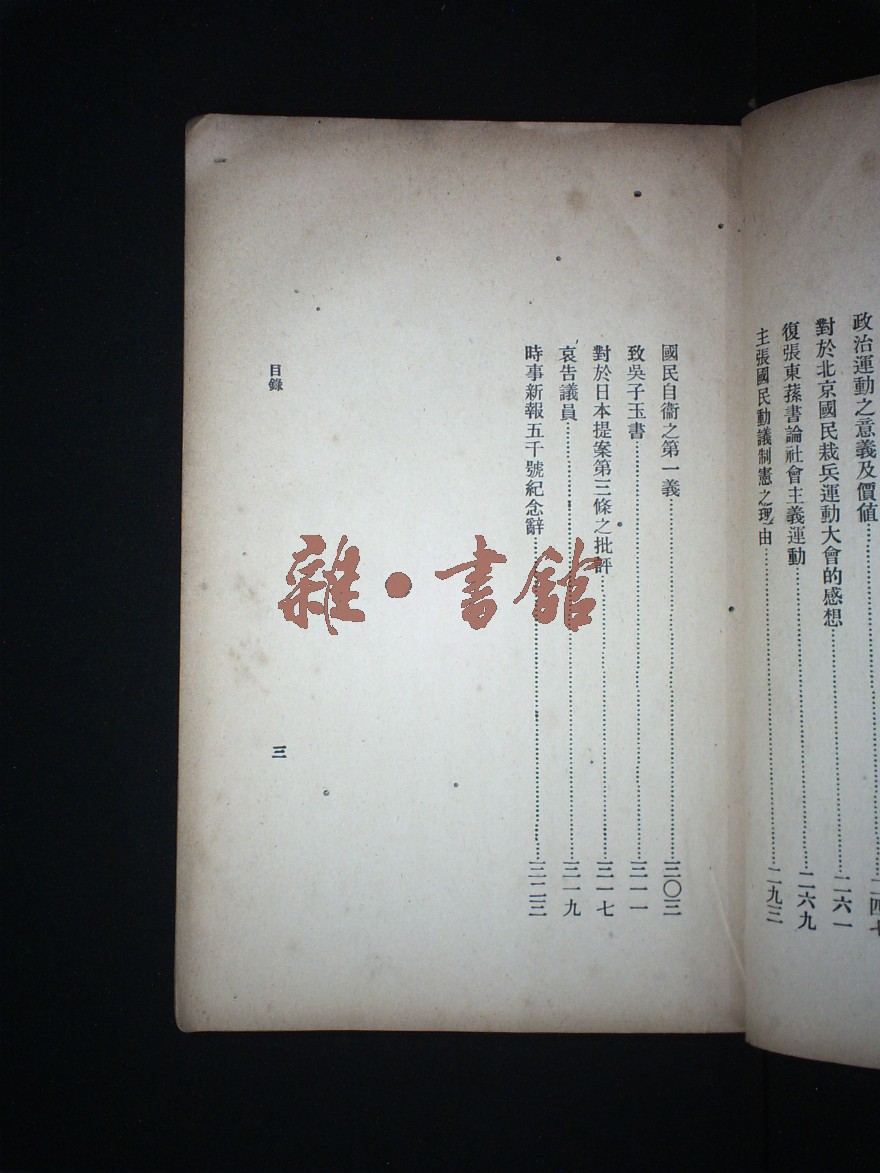 政治運動之意義及價值……二四七
對於北京國民裁兵運動大會的感想……二六一
復張東蓀書論社會主義運動……二六九
主張國民動議制憲之理由……二九三
國民自衞之第一義……三〇三
致吳子玉書……三一一
對於日本提案第三條之批評……三一七
哀告議員……三一九
時事新報五千號紀念辭……三二三
目錄
三
雜·書館